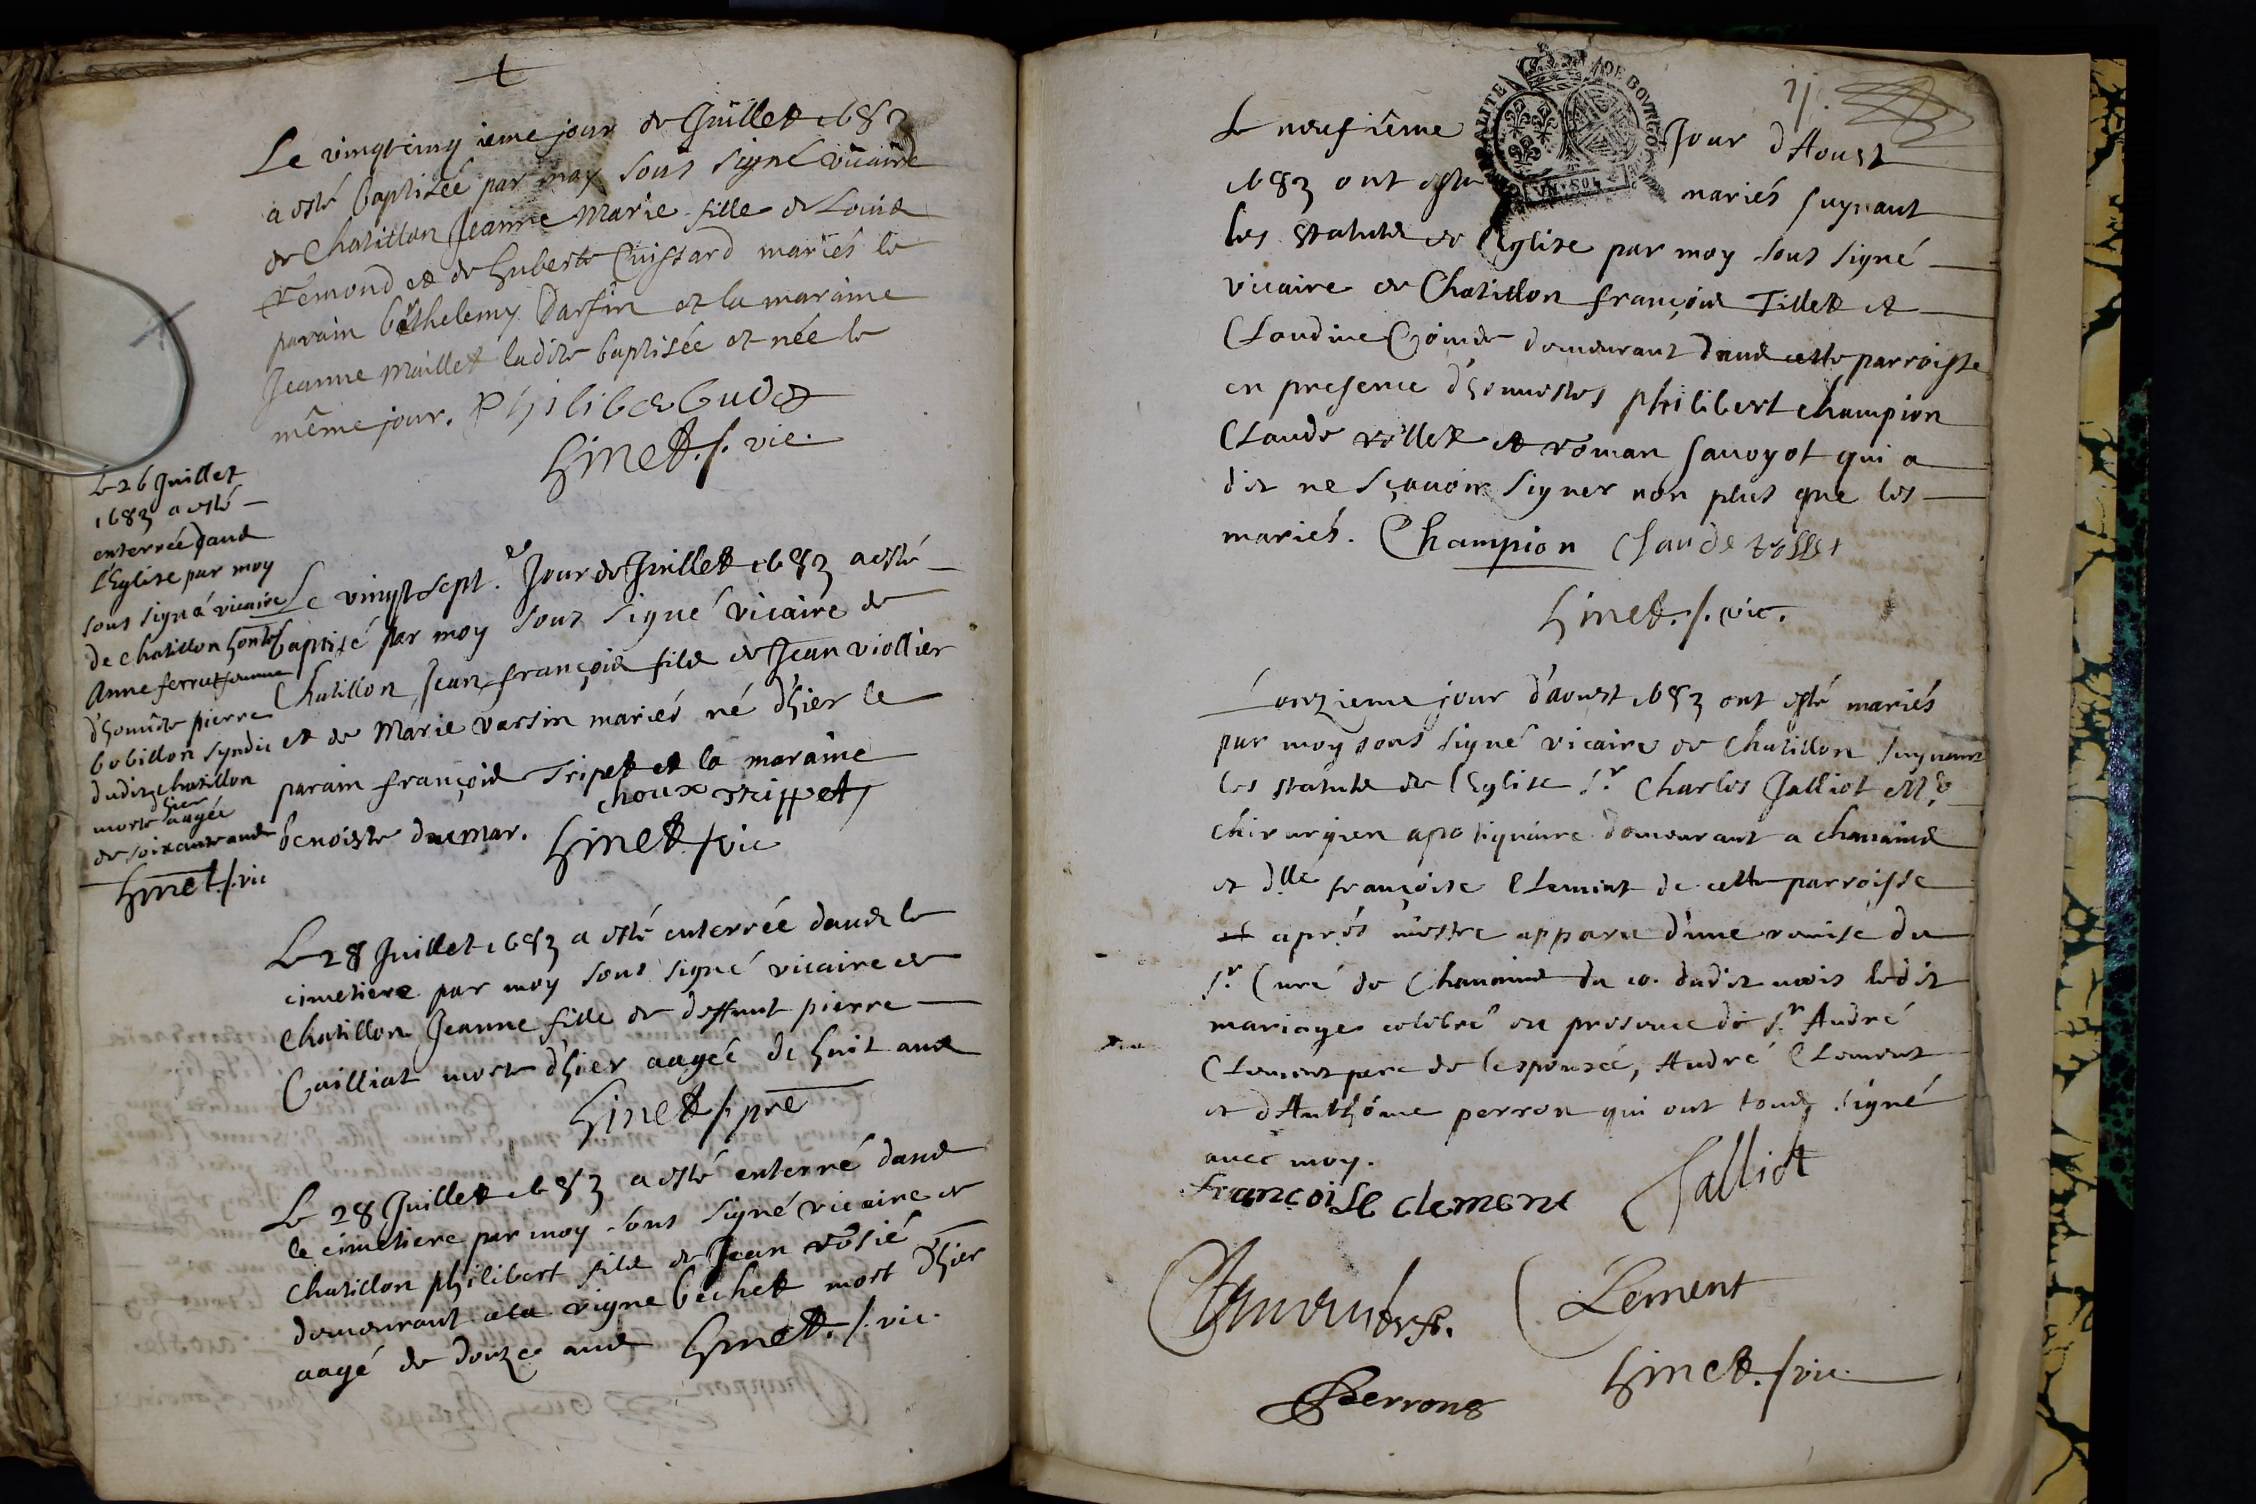 Le vingtcinq ieme jour de Juillet 1683
a esté baptisée par moy sous signé vicaire
de Chatillon Jeanne Marie fille de Louis
rémond et de huberte Cuissard mariés le
parain Bethelemy Darfin et la maraine
Jeanne Maillet ladite baptisée et née le
même jour.
hinet./. vic.
Le 26 Juillet
1683 a esté
enterrée dans
l'Eglise par moy
sous signé vicaire
de chatillon honte
Anne ferrut femme
d'honneste pierre
bobillon syndic
dudit chatillon
morte d'hier aagée
de soixante ans
hinet./.vic
Le vingt sept.e Jour de Juillet 1683 a esté
baptisé par moy sous signé vicaire de
Chatillon Jean françois fils de Jean viollier
et de Marie varsin mariés né d'hier le
parain françois Tripet et la maraine
choux trippet
benoiste dumar. hinet /vic
Le 28 Juillet 1683 a esté enterrée dans le
cimetiere par moy sous signé vicaire de
Chatillon Jeanne fille de deffunt pierre
Cailliat morte d'hier aagée de huit ans
hinet /. pre
Le 28 Juillet 1683 a esté enterré dans
le cimetiere par moy sous signé vicaire de
Chatillon philibert fils de Jean rosié
demeurant a la vigne bechet mort d'hier
aagé de douze ans hinet./.vic.
GENERALITE DE BOURGOGNE
UN SOL
Le neufiême Jour d'Aoust
1683 ont esté mariés suyvant
les statuts de l'Eglise par moy sous signé
vicaire de Chatillon françois Tillet et
Claudine demeurant dans cette parroisse
en presence d'honnestes philibert champion
Claude rollet et roman savoyot qui a
dit ne sçavoir signer non plus que les
mariés. Champion Claude rollet
hinet./.vic.
L'onzieme jour d'aoust 1683 ont esté mariés
par moy sous signé vicaire de Chatillon suyvant
les statuts de l'Eglise Sr. Charles Jalliot Me
chirurgien apotiquaire demeurant a
et dlle françoise Clement de cette parroisse
et aprés m'estre apparu d'une remise du
Sr. Curé de du 10. dudit mois ledit
mariage celebré en presence de Sr. André
Clement pere de lespousée, André Clement
et d'Anthoine perron qui ont tous signé
avec moy.
francoise clement Jalliot
Clement
Perrone hinet./vic.